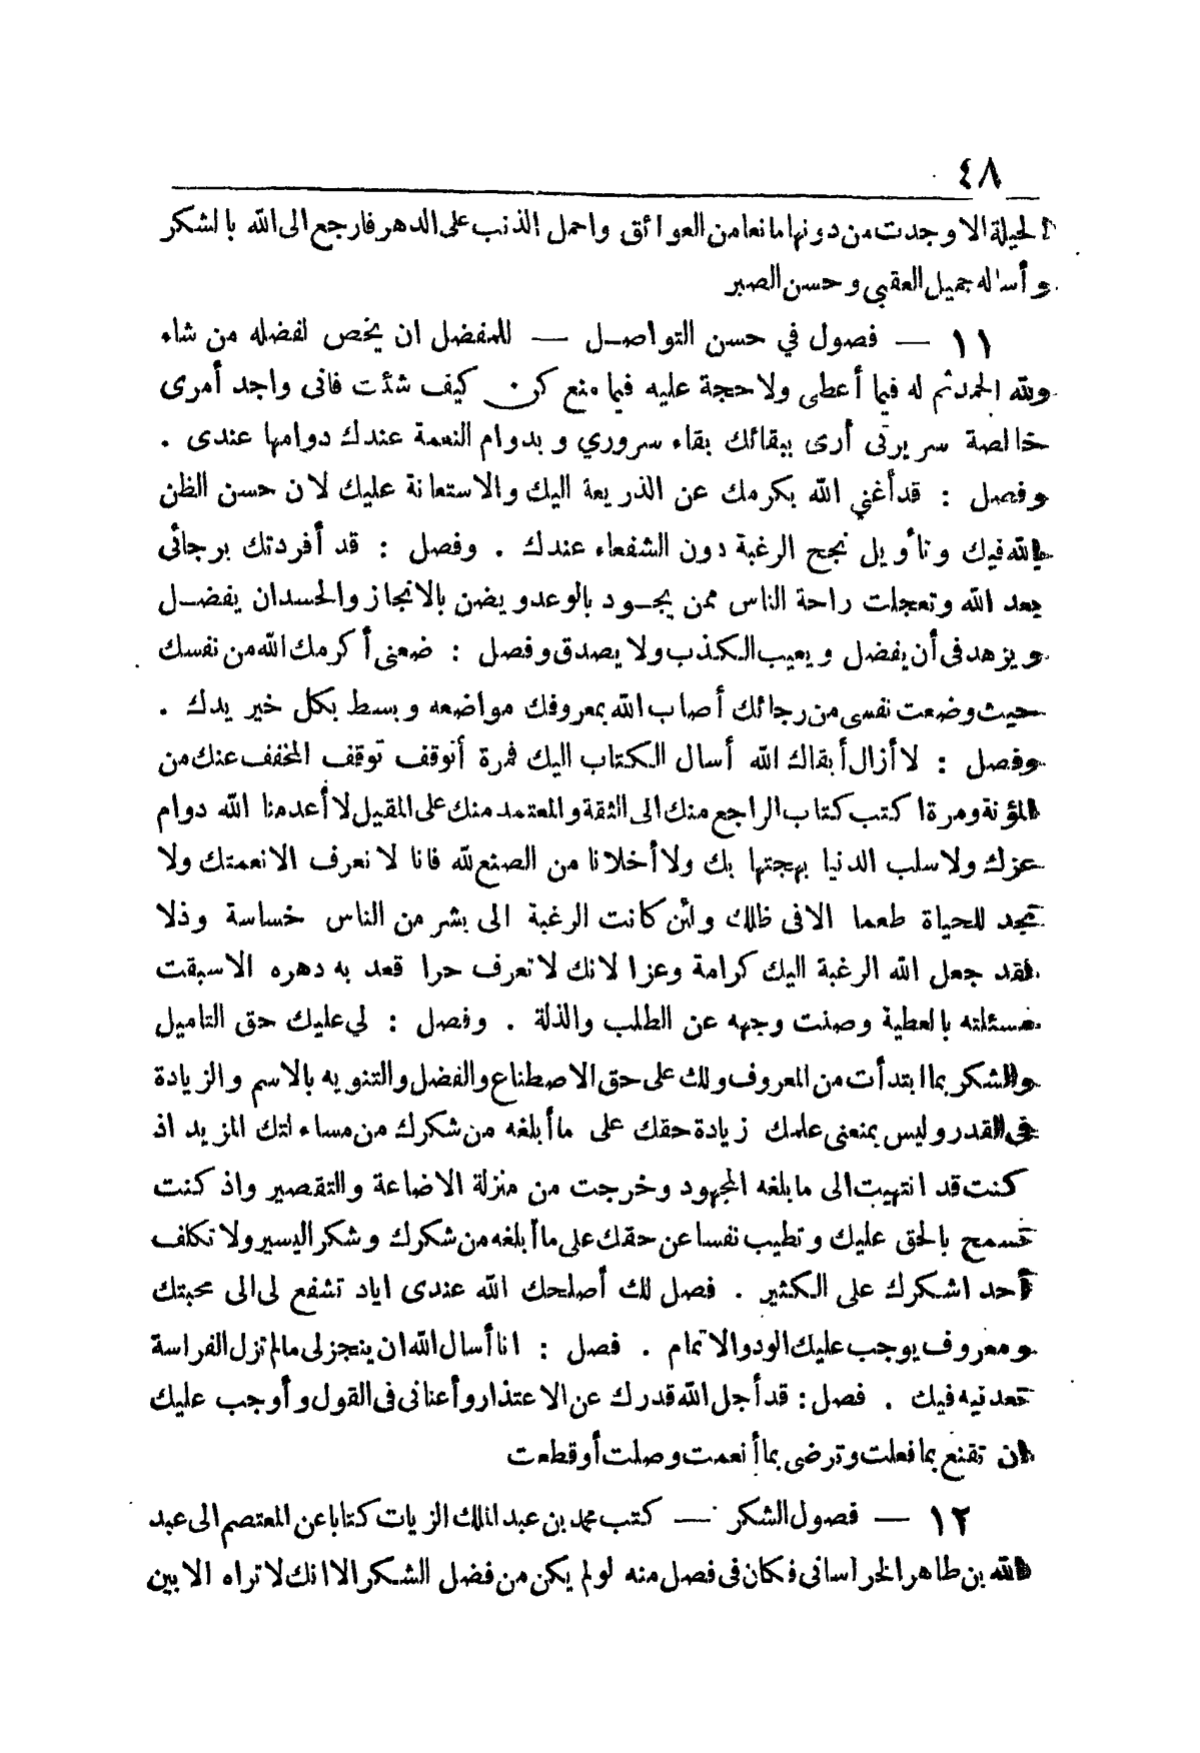 ٤٨
الحيلة الا وجدت من دونها مانعا من العوائق واحمل الذنب على الدهر فارجع الى الله بالشكر
وأساله جميل العقبى وحسن الصبر
١١ — فصول في حسن التواصل — للمفضل ان يخص لفضله من شاء
ولله الحمد ثم له فيما أعطى ولا حجة عليه فيما منع كن كيف شئت فانى واجد أمرى
خالصة سريرتى أرى ببقائك بقاء سروري وبدوام النعمة عندك دوامها عندى .
وفصل : قد أغني الله بكرمك عن الذريعة اليك والاستعانة عليك لان حسن الظن
بالله فيك وتأويل نجح الرغبة دون الشفعاء عندك . وفصل : قد أفردتك برجائى
بعد الله وتعجلت راحة الناس ممن يجود بالوعد ويضن بالانجاز والحسدان يفضل
ويزهد فى أن يفضل ويعيب الكذب ولا يصدق وفصل : ضعنى أكرمك الله من نفسك
حيث وضعت نفسى من رجائك أصاب الله بمعروفك مواضعه وبسط بكل خير يدك .
وفصل : لا أزال أبقاك الله أسال الكتاب اليك فمرة أتوقف توقف المخفف عنك من
المؤنة ومرة اكتب كتاب الراجع منك الى الثقة والمعتمد منك على المقيل لا أعدمنا الله دوام
عزك ولا سلب الدنيا بهجتها بك ولا أخلانا من الصنع لله فانا لا نعرف الا نعمتك ولا
نجد للحياة طعما الا فى ظلك ولئن كانت الرغبة الى بشر من الناس خساسة وذلا
فقد جعل الله الرغبة اليك كرامة وعزا لانك لا تعرف حرا قعد به دهره الا سبقت
مسئلته بالعطية وصنت وجهه عن الطلب والذلة . وفصل : لي عليك حق التاميل
والشكر بما ابتدأت من المعروف ولك على حق الاصطناع والفضل والتنويه بالاسم والزيادة
فى القدر وليس يمنعنى علمك زيادة حقك على ما أبلغه من شكرك من مساءلتك المزيد اذ
كنت قد انتهيت الى ما بلغه المجهود وخرجت من منزلة الاضاعة والتقصير واذ كنت
تسمح بالحق عليك وتطيب نفسا عن حقك على ما أبلغه من شكرك وشكر اليسير ولا تكلف
أحد اشكرك على الكثير . فصل لك أصلحك الله عندى اياد تشفع لى الى محبتك
ومعروف يوجب عليك الود والاتمام . فصل : انا أسال الله ان ينجز لى ما لم تزل الفراسة
تعدنيه فيك . فصل : قد أجل الله قدرك عن الاعتذار وأعنانى فى القول وأوجب عليك
ان تقنع بما فعلت وترضى بما أنعمت وصلت أو قطعت
١٢ — فصول الشكر — كتب محمد بن عبد الملك الزيات كتابا عن المعتصم الى عبد
الله بن طاهر الخراسانى فكان فى فصل منه لو لم يكن من فضل الشكر الا انك لا تراه الا بين